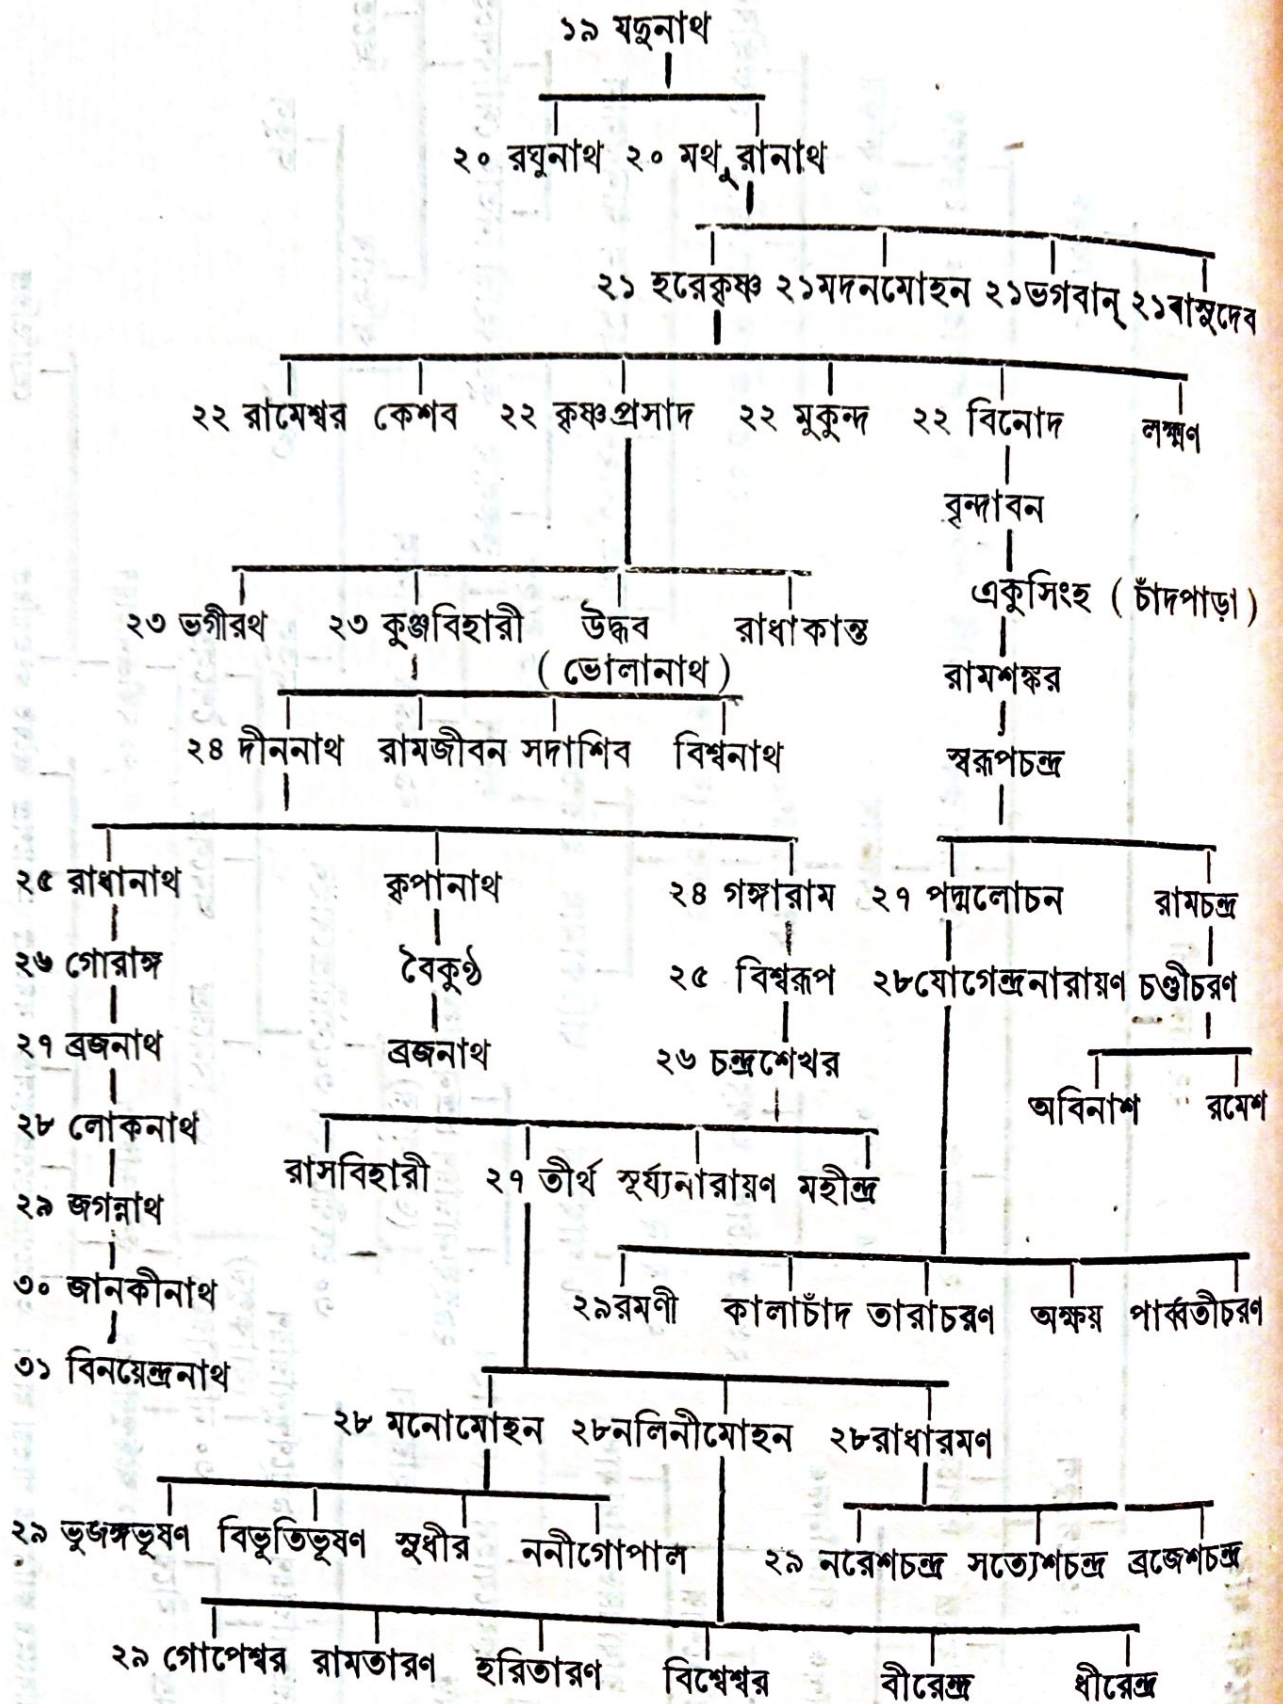 ১৯ যদুনাথ
২০ রঘুনাথ ২০ মথুরানাথ
২১ হরেকৃষ্ণ ২১মদনমোহন ২১ভগবান্ ২১বাসুদেব
২২ রামেশ্বর কেশব ২২ কৃষ্ণপ্রসাদ ২২ মুকুন্দ ২২ বিনোদ লক্ষ্মণ
বৃন্দাবন
একুসিংহ ( চাঁদপাড়া )
২৩ ভগীরথ ২৩ কুঞ্জবিহারী উদ্ধব রাধাকান্ত
( ভোলানাথ )
রামশঙ্কর
২৪ দীননাথ রামজীবন সদাশিব বিশ্বনাথ স্বরূপচন্দ্র
২৫ রাধানাথ কৃপানাথ ২৪ গঙ্গারাম ২৭ পদ্মলোচন রামচন্দ্র
২৬ গোরাঙ্গ বৈকুণ্ঠ ২৫ বিশ্বরূপ ২৮যোগেন্দ্রনারায়ণ চণ্ডীচরণ
২৭ ব্রজনাথ ব্রজনাথ ২৬ চন্দ্রশেখর
অবিনাশ রমেশ
২৮ লোকনাথ
রাসবিহারী ২৭ তীর্থ সূর্য্যনারায়ণ মহীন্দ্র
২৯ জগন্নাথ
৩০ জানকীনাথ ২৯রমণী কালাচাঁদ তারাচরণ অক্ষয় পার্ব্বতীচরণ
৩১ বিনয়েন্দ্রনাথ
২৮ মনোমোহন ২৮নলিনীমোহন ২৮রাধারমণ
২৯ ভুজঙ্গভূষণ বিভূতিভূষণ সুধীর ননীগোপাল ২৯ নরেশচন্দ্র সত্যেশচন্দ্র ব্রজেশচন্দ্র
২৯ গোপেশ্বর রামতারণ হরিতারণ বিশ্বেশ্বর বীরেন্দ্র ধীরেন্দ্র